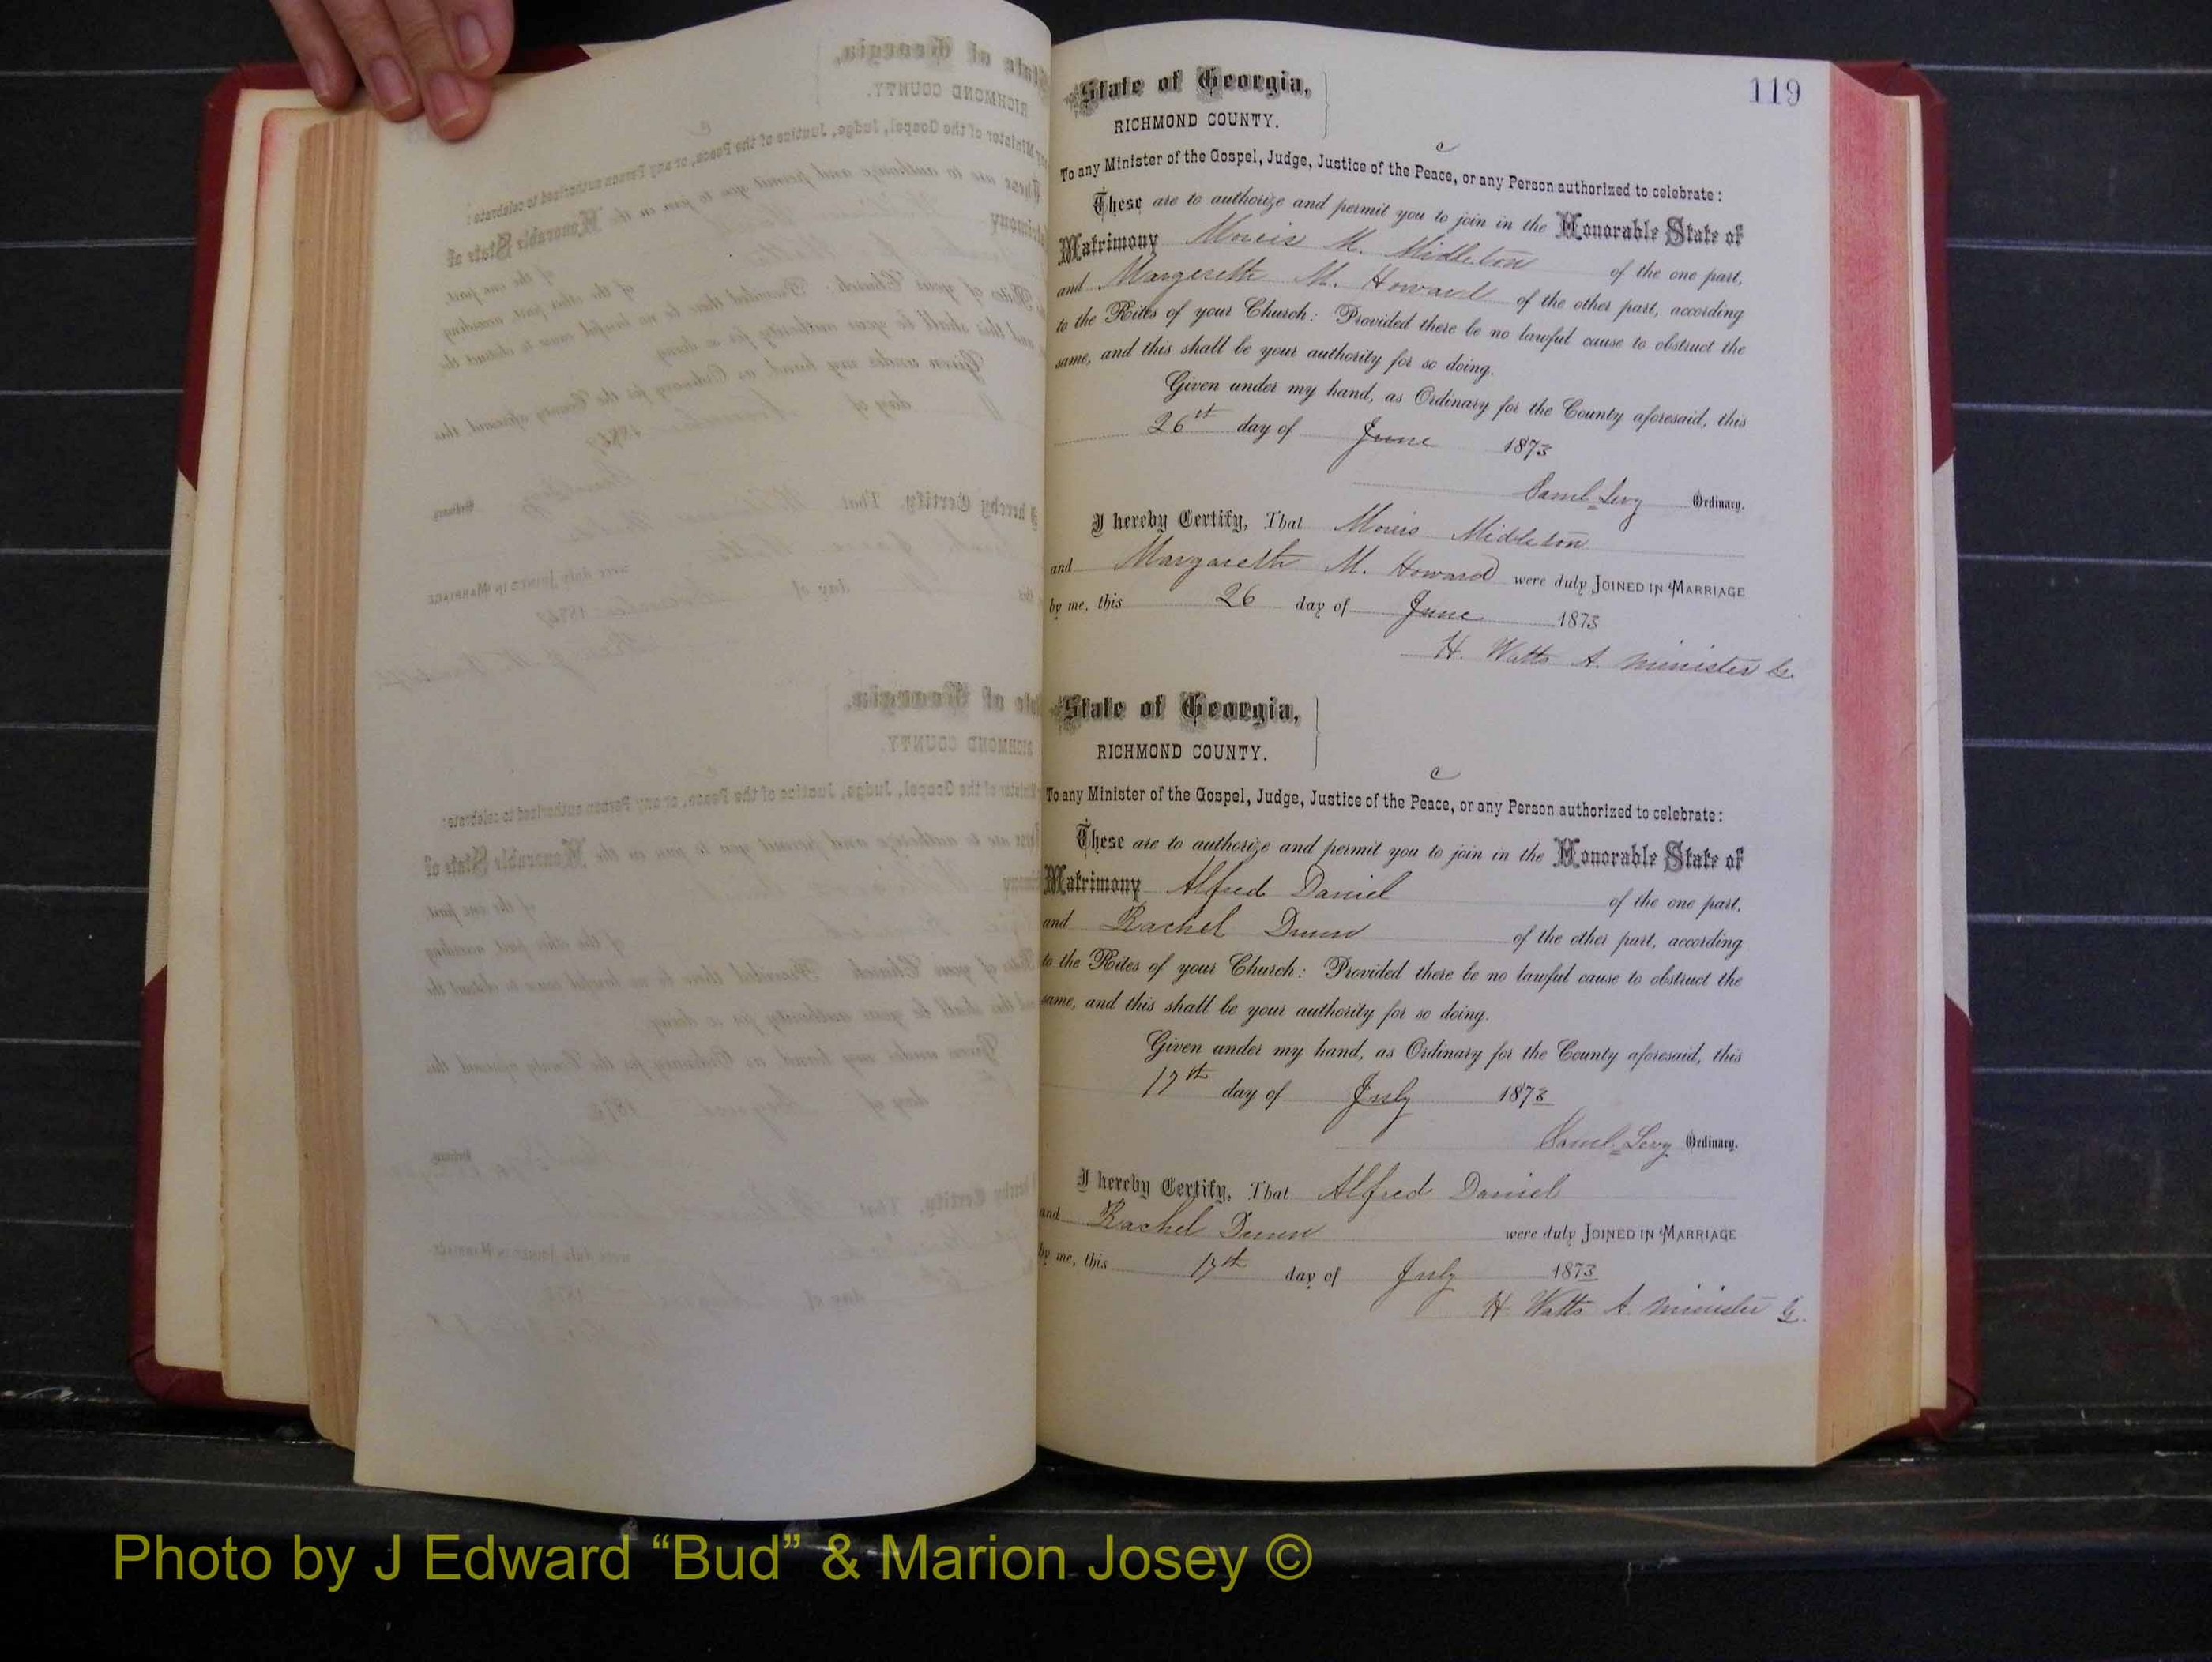 119
State of Georgia,
RICHMOND COUNTY.
c
To any Minister of the Gospel, Judge, Justice of the Peace, or any Person authorized to celebrate:
These are to authorize and permit you to join in the Honorable State of
Matrimony Morris M. Middleton of the one part,
and Margereth M. Howard of the other part, according
to the Rites of your Church: Provided there be no lawful cause to obstruct the
same, and this shall be your authority for so doing.
Given under my hand, as Ordinary for the County aforesaid, this
26th day of June 1873
Saml Levy Ordinary.
I hereby Certify, That Morris Middleton
and Margareth M. Howard were duly JOINED IN MARRIAGE
by me, this 26 day of June 1873
H. Watts A. minister
State of Georgia,
RICHMOND COUNTY.
c
To any Minister of the Gospel, Judge, Justice of the Peace, or any Person authorized to celebrate:
These are to authorize and permit you to join in the Honorable State of
Matrimony Alfred Daniel of the one part,
and Rachel Dunn of the other part, according
to the Rites of your Church: Provided there be no lawful cause to obstruct the
same, and this shall be your authority for so doing.
Given under my hand, as Ordinary for the County aforesaid, this
17th day of July 1873
Saml Levy Ordinary.
I hereby Certify, That Alfred Daniel
and Rachel Dunn were duly JOINED IN MARRIAGE
by me, this 17th day of July 1873
H. Watts A. minister G.
Photo by J Edward “Bud” & Marion Josey ©